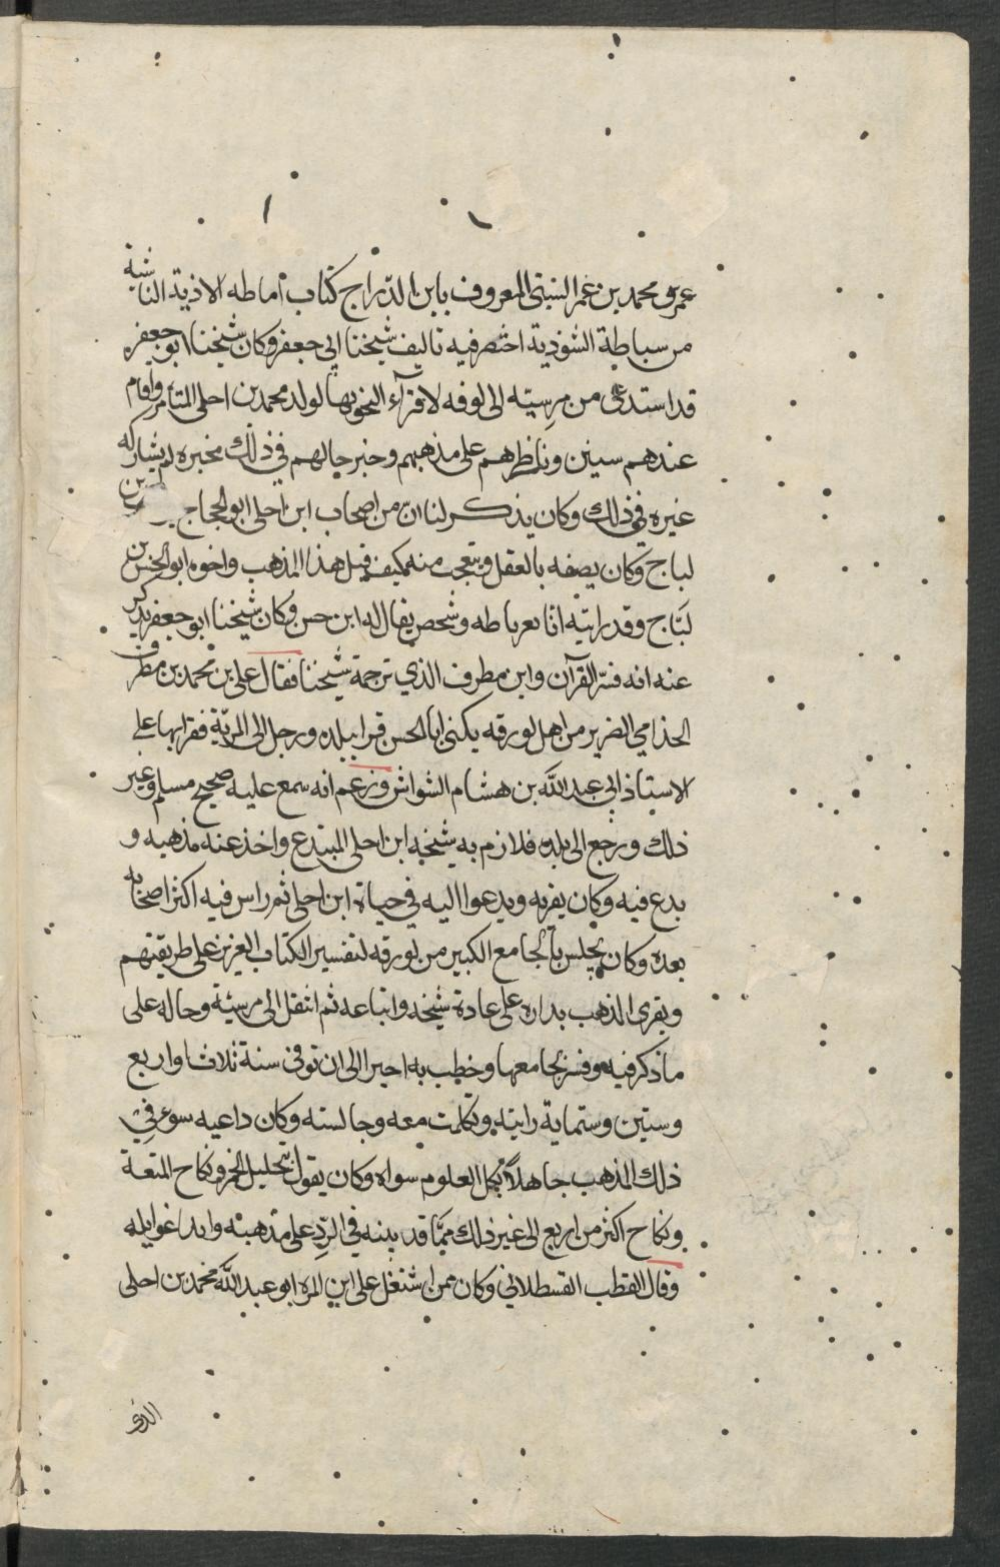 عمرو محمد بن عمر السبتى المعروف بابن الدراج كتاب أماطه الاذية الناشية
من سباطة الشوذية اختصر فيه تاليف شيخنا ابي جعفر وكان شيخنا ابو جعفر
قد استدعى من مرسيته الى لوقه لاقراء النحو بها لولد محمد بن احلى المتامر واقام
عندهم سنين وناظرهم على مذهبهم وخبر حالهم في ذلك مخبره لم يشاركه
غيره في ذلك وكان يذكر لنا ان من اصحاب ابن احلى ابو الحجاج بن
لباج وكان يصفه بالعقل ويتعجب منه كيف قبل هذا المذهب واخوه ابو الحسن بن
لبّاج وقد رايته انا بغرناطه وشخص يقال له ابن حسن وكان شيخنا ابو جعفر يذكر
عنه انه فسر القرآن وابن مطرف الذي ترجمة شيخنا فقال على بن محمد بن مطرف
الجذامي الضرير من اهل لورقه يكنى ابا الحسن قرا ببلده ورحل الى المريّة فقرا بها على
الاستاذ ابي عبد الله بن هشام الشواش وزعم انه سمع عليه صحيح مسلم وغير
ذلك ورجع الى بلده فلازم به شيخه ابن احلى المبتدع واخذ عنه مذهبه و
بدع فيه وكان يقربه ويدعوا اليه في حياة ابن احلى ثم راس فيه اكثر اصحابه
بعده وكان يجلس بالجامع الكبير من لورقه لتفسير الكتاب العزيز على طريقتهم
ويقرى المذهب بداره على عادة شيخه واتباعه ثم انتقل الى مرسية وحاله على
ما ذكر فيه وفسر بجامعها وخطب به اخيرا الى ان توفى سنة ثلاث او اربع
وستين وستماية رايته وتكلمت معه وجالسته وكان داعيه سوء في
ذلك المذهب جاهلاً بكل العلوم سواه وكان يقول بتحليل الخمر ونكاح المتعة
ونكاح اكثر من اربع الى غير ذلك ممّا قد بينه في الردِ على مذهبه وابدا غوايله
وقال القطب القسطلاني وكان ممن اشتغل على ابن المره ابو عبد الله محمد بن احلى